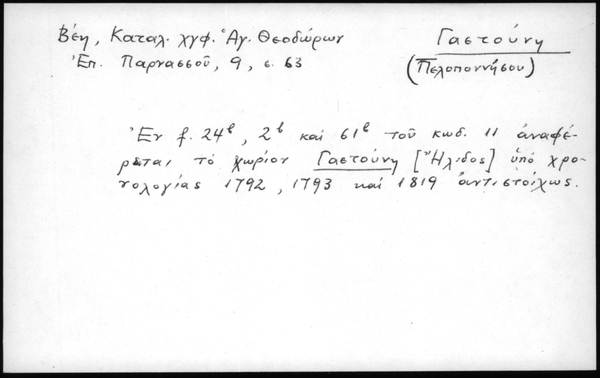 Βέη, Καταλ. χγφ. Ἁγ. Θεοδώρων
Ἐπ. Παρνασσοῦ, 9, σ. 63
Γαστούνη
(Πελοποννήσου)
Ἐν f. 24β, 2β καί 61β τοῦ κωδ. 11 ἀναφέ-
ρεται τό χωρίον Γαστούνη [Ἤλιδος] ὑπό χρο-
νολογίας 1792, 1793 καί 1819 ἀντιστοίχως.